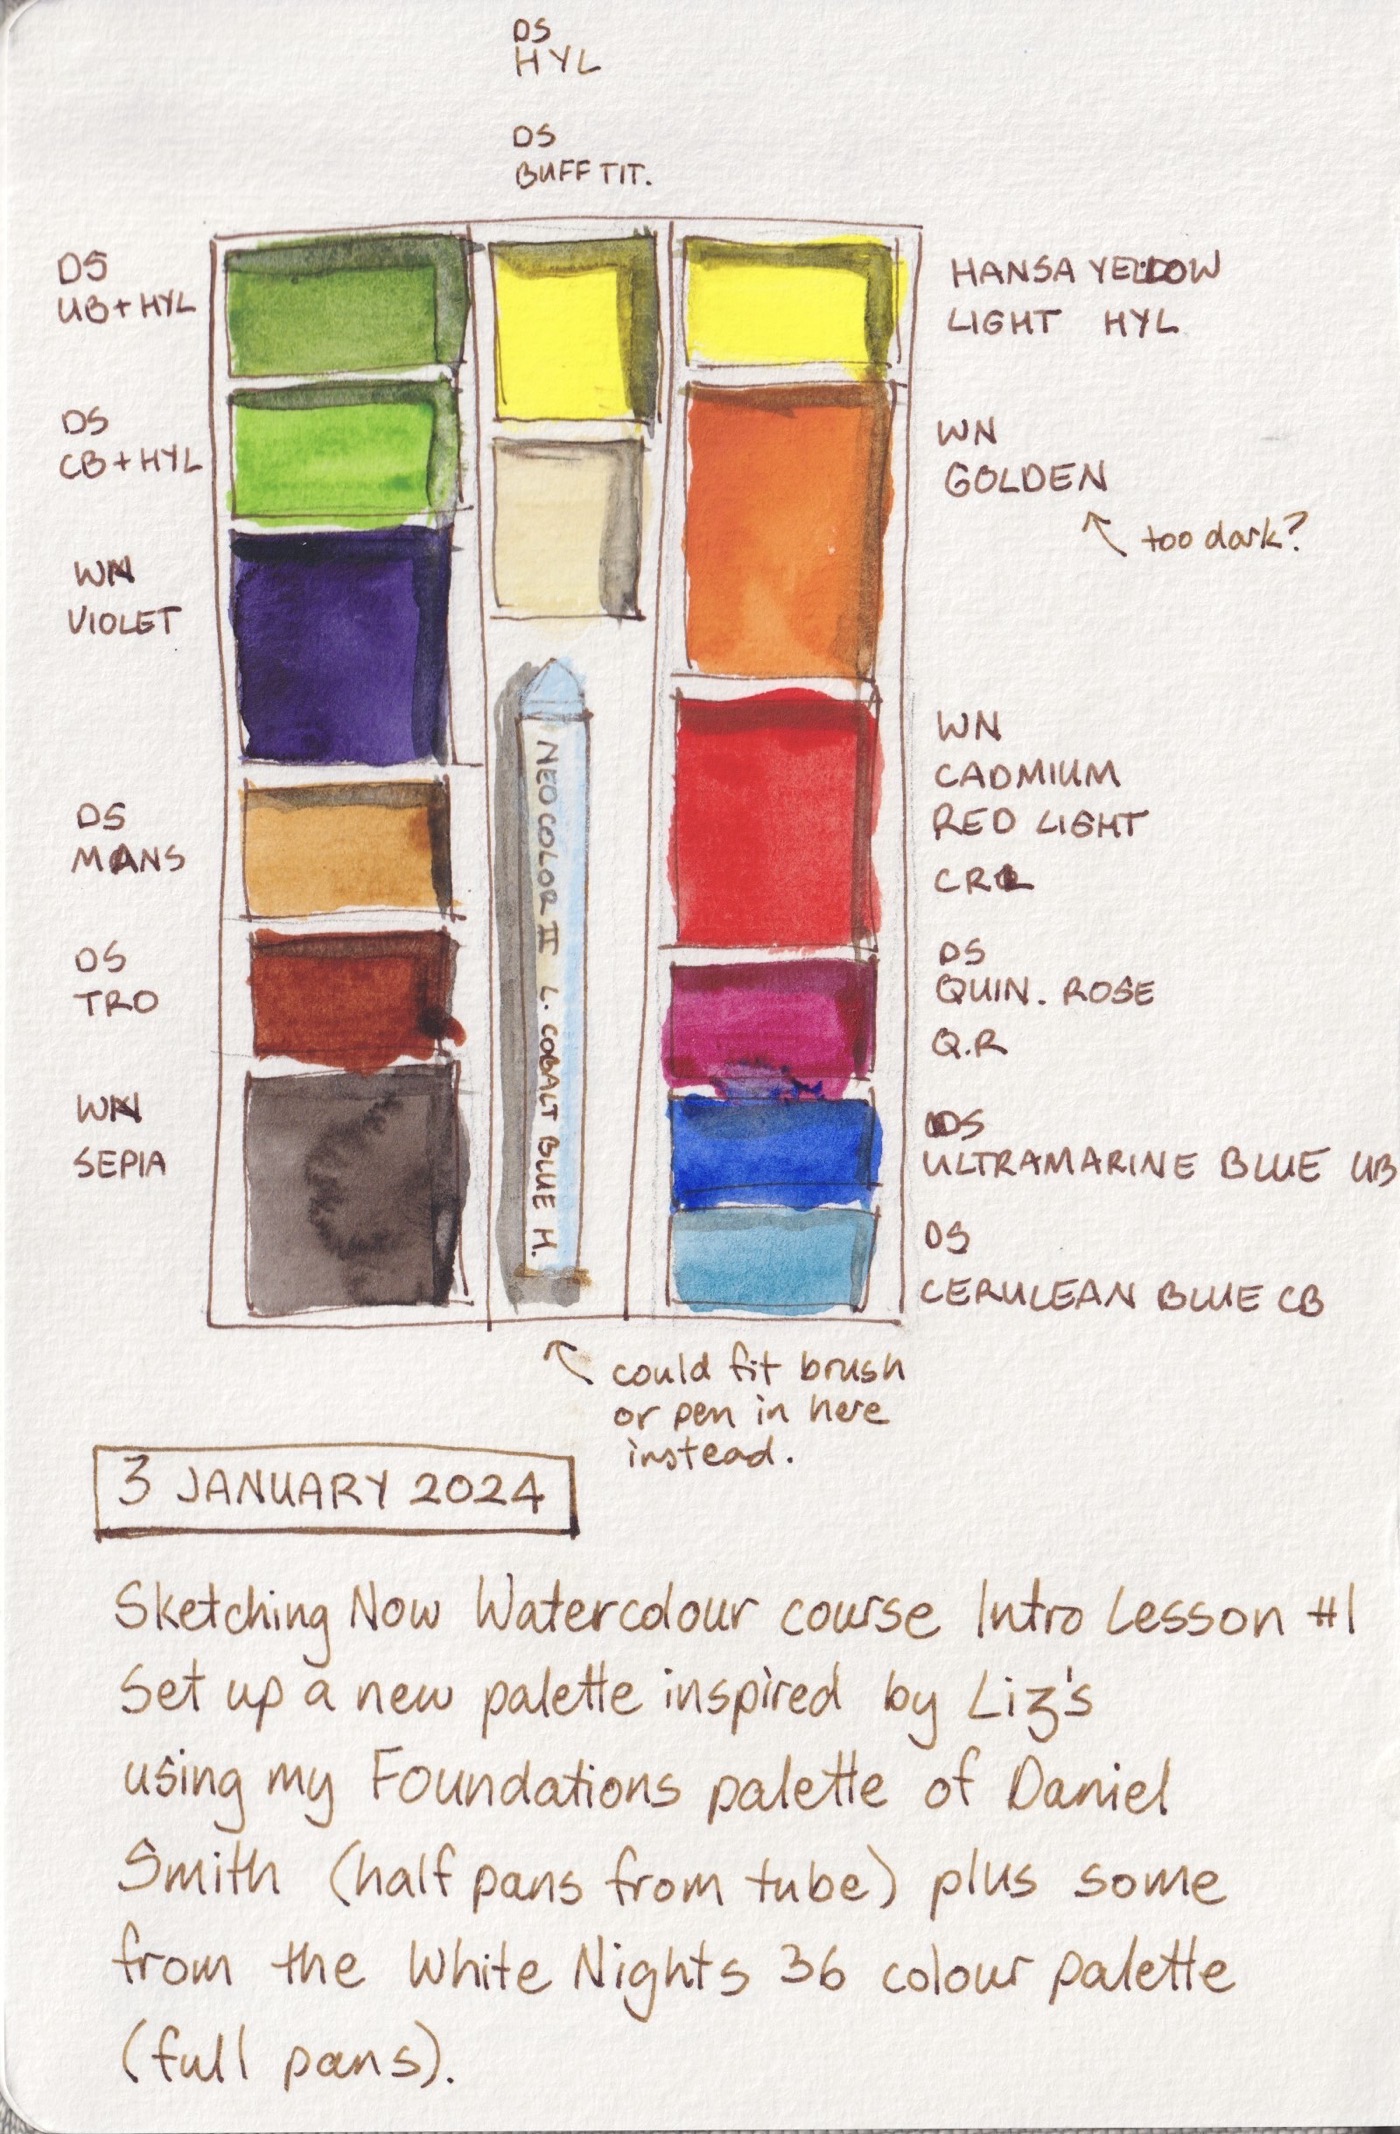 DS
HYL
DS
BUFF TIT.
DS
UB+HYL
DS
CB+HYL
WN
VIOLET
DS
MANS
DS
TRO
WN
SEPIA
NEOCOLOR II L. COBALT BLUE H.
HANSA YELLOW
LIGHT HYL
WN
GOLDEN
too dark?
WN
CADMIUM
RED LIGHT
CRL
DS
QUIN. ROSE
Q.R
DS
ULTRAMARINE BLUE UB
DS
CERULEAN BLUE CB
could fit brush
or pen in here
instead.
3 JANUARY 2024
Sketching Now Watercolour course Intro Lesson #1
Set up a new palette inspired by Liz's
using my Foundations palette of Daniel
Smith (half pans from tube) plus some
from the White Nights 36 colour palette
(full pans).